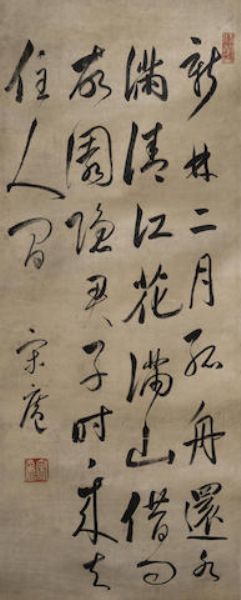 新林二月孤舟還水
滿清江花滿山借問
故園隱君子時〻來去
住人間
宋